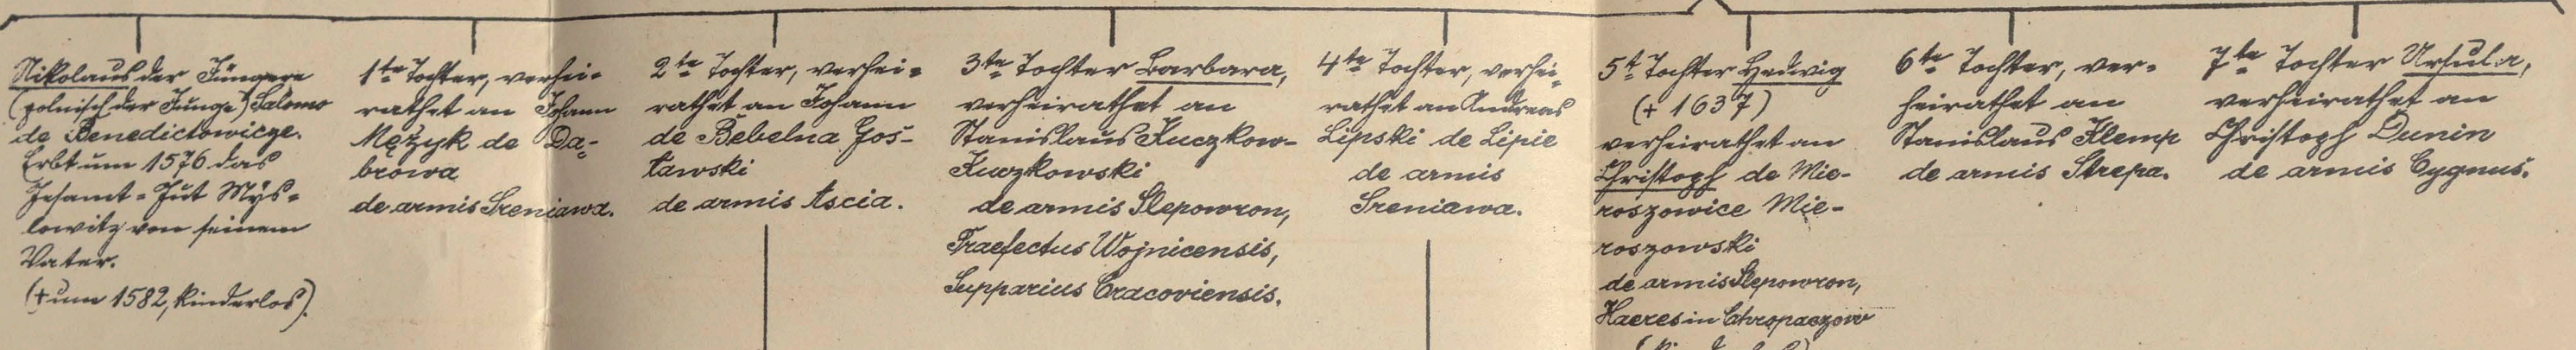 Nikolaus der Jüngere
(polnisch der Junge) Salomo
de Benedictowicze.
Erbt um 1576 das
Gesamt-Gut Mys-
lowitz von seinem
Vater.
(† um 1582, kinderlos).
1te Tochter, verhei-
rathet an Johann
Mężyk de Da-
browa
de armis Sreniawa.
2te Tochter, verhei-
rathet an Johann
de Bebelna Gos-
ławski
de armis Ascia.
3te Tochter Barbara,
verheirathet an
Stanislaus Kuczkow-
Kuczkowski
de armis Slepowron,
Praefectus Wojnicensis,
Supparius Cracoviensis.
4te Tochter, verhei-
rathet an Andreas
Lipski de Lipie
de armis
Sreniawa.
5t Tochter Hedwig
(+ 1637)
verheirathet an
Christoph de Mie-
roszowice Mie-
roszowski
de armis Slepowron,
Haeres in Chropaczow
6te Tochter, ver-
heirathet an
Stanislaus Klemp
de armis Strepa.
7te Tochter Ursula,
verheirathet an
Christoph Dunin
de armis Cygnus.